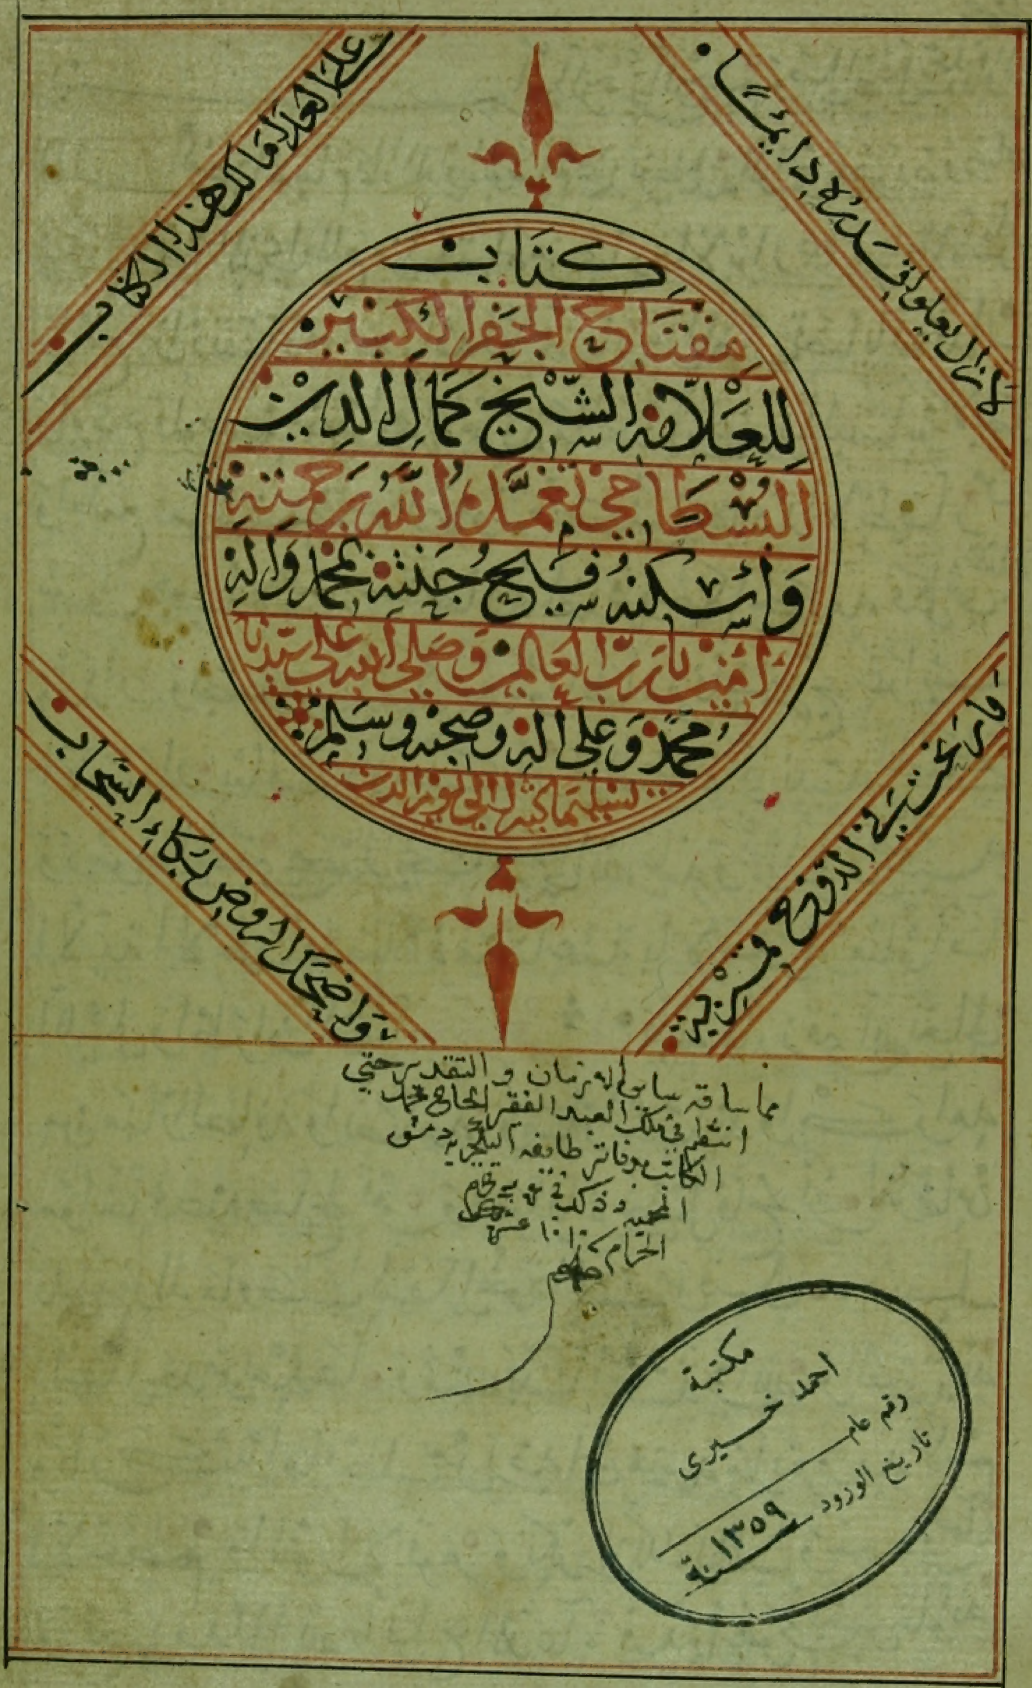 لا زال يعلوا قدره دائما
على العلا مالك هذا الكتاب
كتاب
مفتاح الجفر الكبير
للعلامة الشيخ كمال الدين
البسطامي تغمده الله برحمته
وأسكنه فسيح جنته بمحمد واله
امين يا رب العالمين وصلى الله على سيدنا
محمد وعلى اله وصحبه وسلم
ما رنحت في الدوح قمرية
واضحك الروض بكاء السحاب
مما ساقه سايق الزمان والتقدير حتى
انتظم في ملك العبد الفقير الحاج محمد
الكاتب بدفاتر طايفه اليكجريه دمشق
المحميه وذلك في
الحرام
مكتبة
احمد خيرى
رقم عام
تاريخ الورود
سنة ١٣٥٩